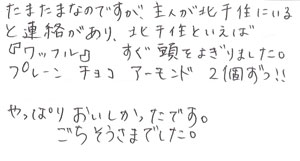 たまたまなのですが、主人が北千住にいる
と連絡があり、北千住といえば
『ワッフル』 すぐ頭をよぎりました。
プレーン チョコ アーモンド 2個ずつ!!
やっぱり おいしかったです。
ごちそうさまでした。